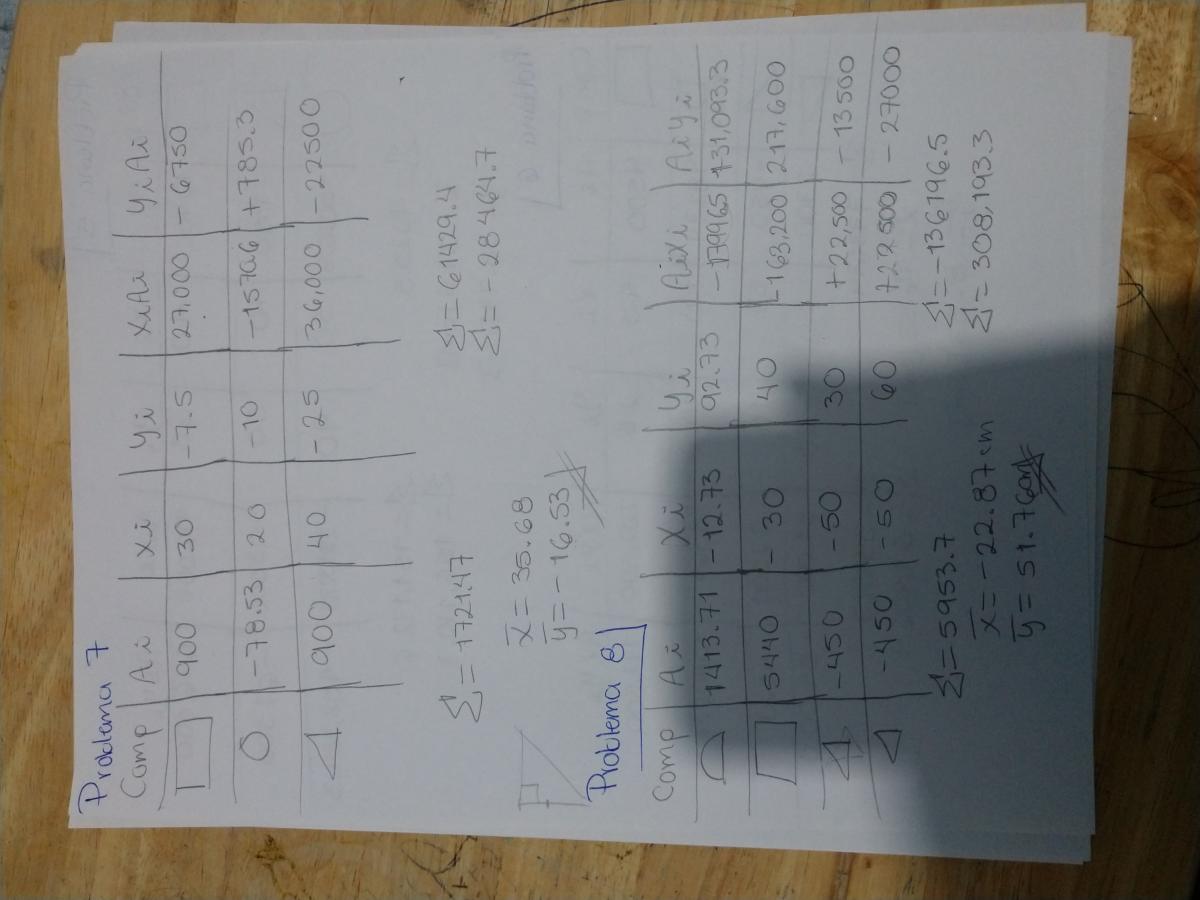 Problema 7
Comp Ai Xi Yi XiAi YiAi
900 30 -7.5 27,000 -6750
-78.53 20 -10 -1570.6 +785.3
900 40 -25 36,000 -22500
Σ=1721.47 Σ=61429.4
Σ=-28464.7
x̄=35.68
ȳ=-16.53
Problema 8
Comp Ai Xi Yi AiXi AiYi
1413.71 -12.73 92.73 -179965 131,093.3
5440 -30 40 -163,200 217,600
-450 -50 30 +22,500 -13500
-450 -50 60 +22500 -27000
Σ=5953.7 Σ=-136196.5
Σ=308,193.3
x̄=-22.87cm
ȳ=51.76cm